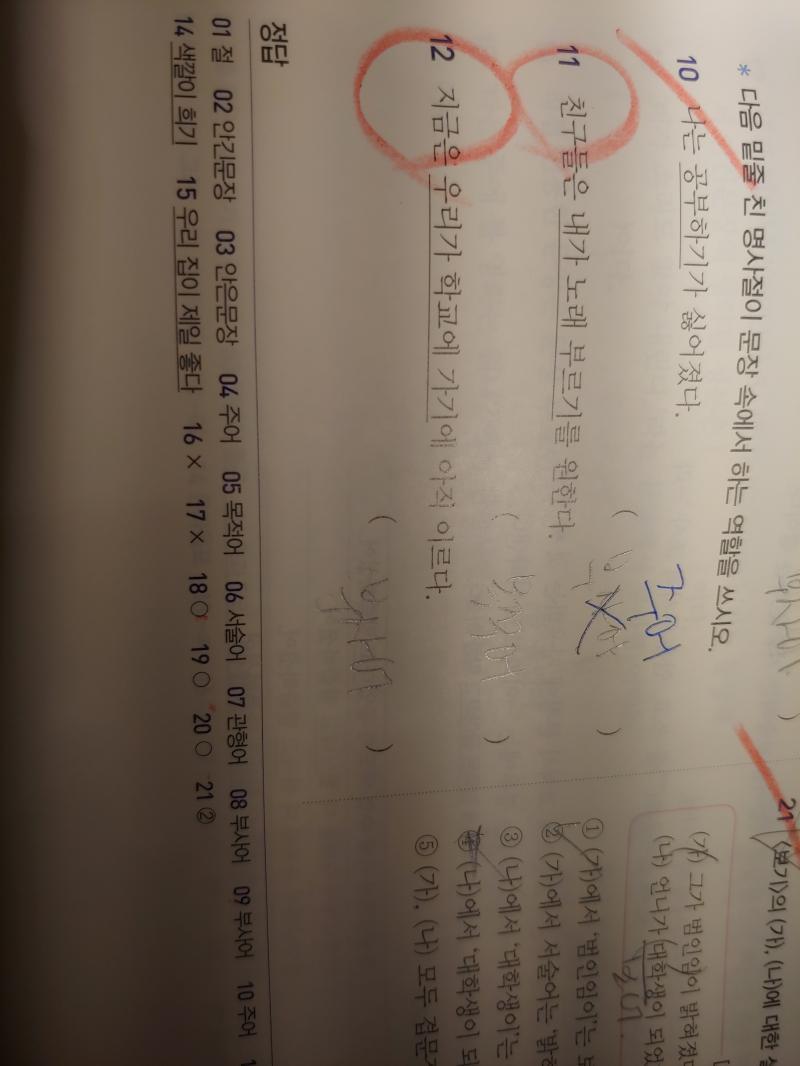 * 다음 밑줄 친 명사절이 문장 속에서 하는 역할을 쓰시오.
10 나는 공부하기가 싫어졌다.
( 주어 )
11 친구들은 내가 노래 부르기를 원한다.
( 목적어 )
12 지금은 우리가 학교에 가기에 아직 이르다.
( 부사어 )
정답
01 절 02 안긴문장 03 안은문장 04 주어 05 목적어 06 서술어 07 관형어 08 부사어 09 부사어 10 주어 1
14 색깔이 희기 15 우리 집이 제일 좋다 16 × 17 × 18 ○ 19 ○ 20 ○ 21 ②
21 <보기>의 (가), (나)에 대한
(가) 그가 범인임이 밝혀졌
(나) 언니가 대학생이 되었
① (가)에서 '범인임이'는
② (가)에서 서술어는 '밝
③ (나)에서 '대학생이'는
④ (나)에서 '대학생이 되
⑤ (가), (나) 모두 겹문